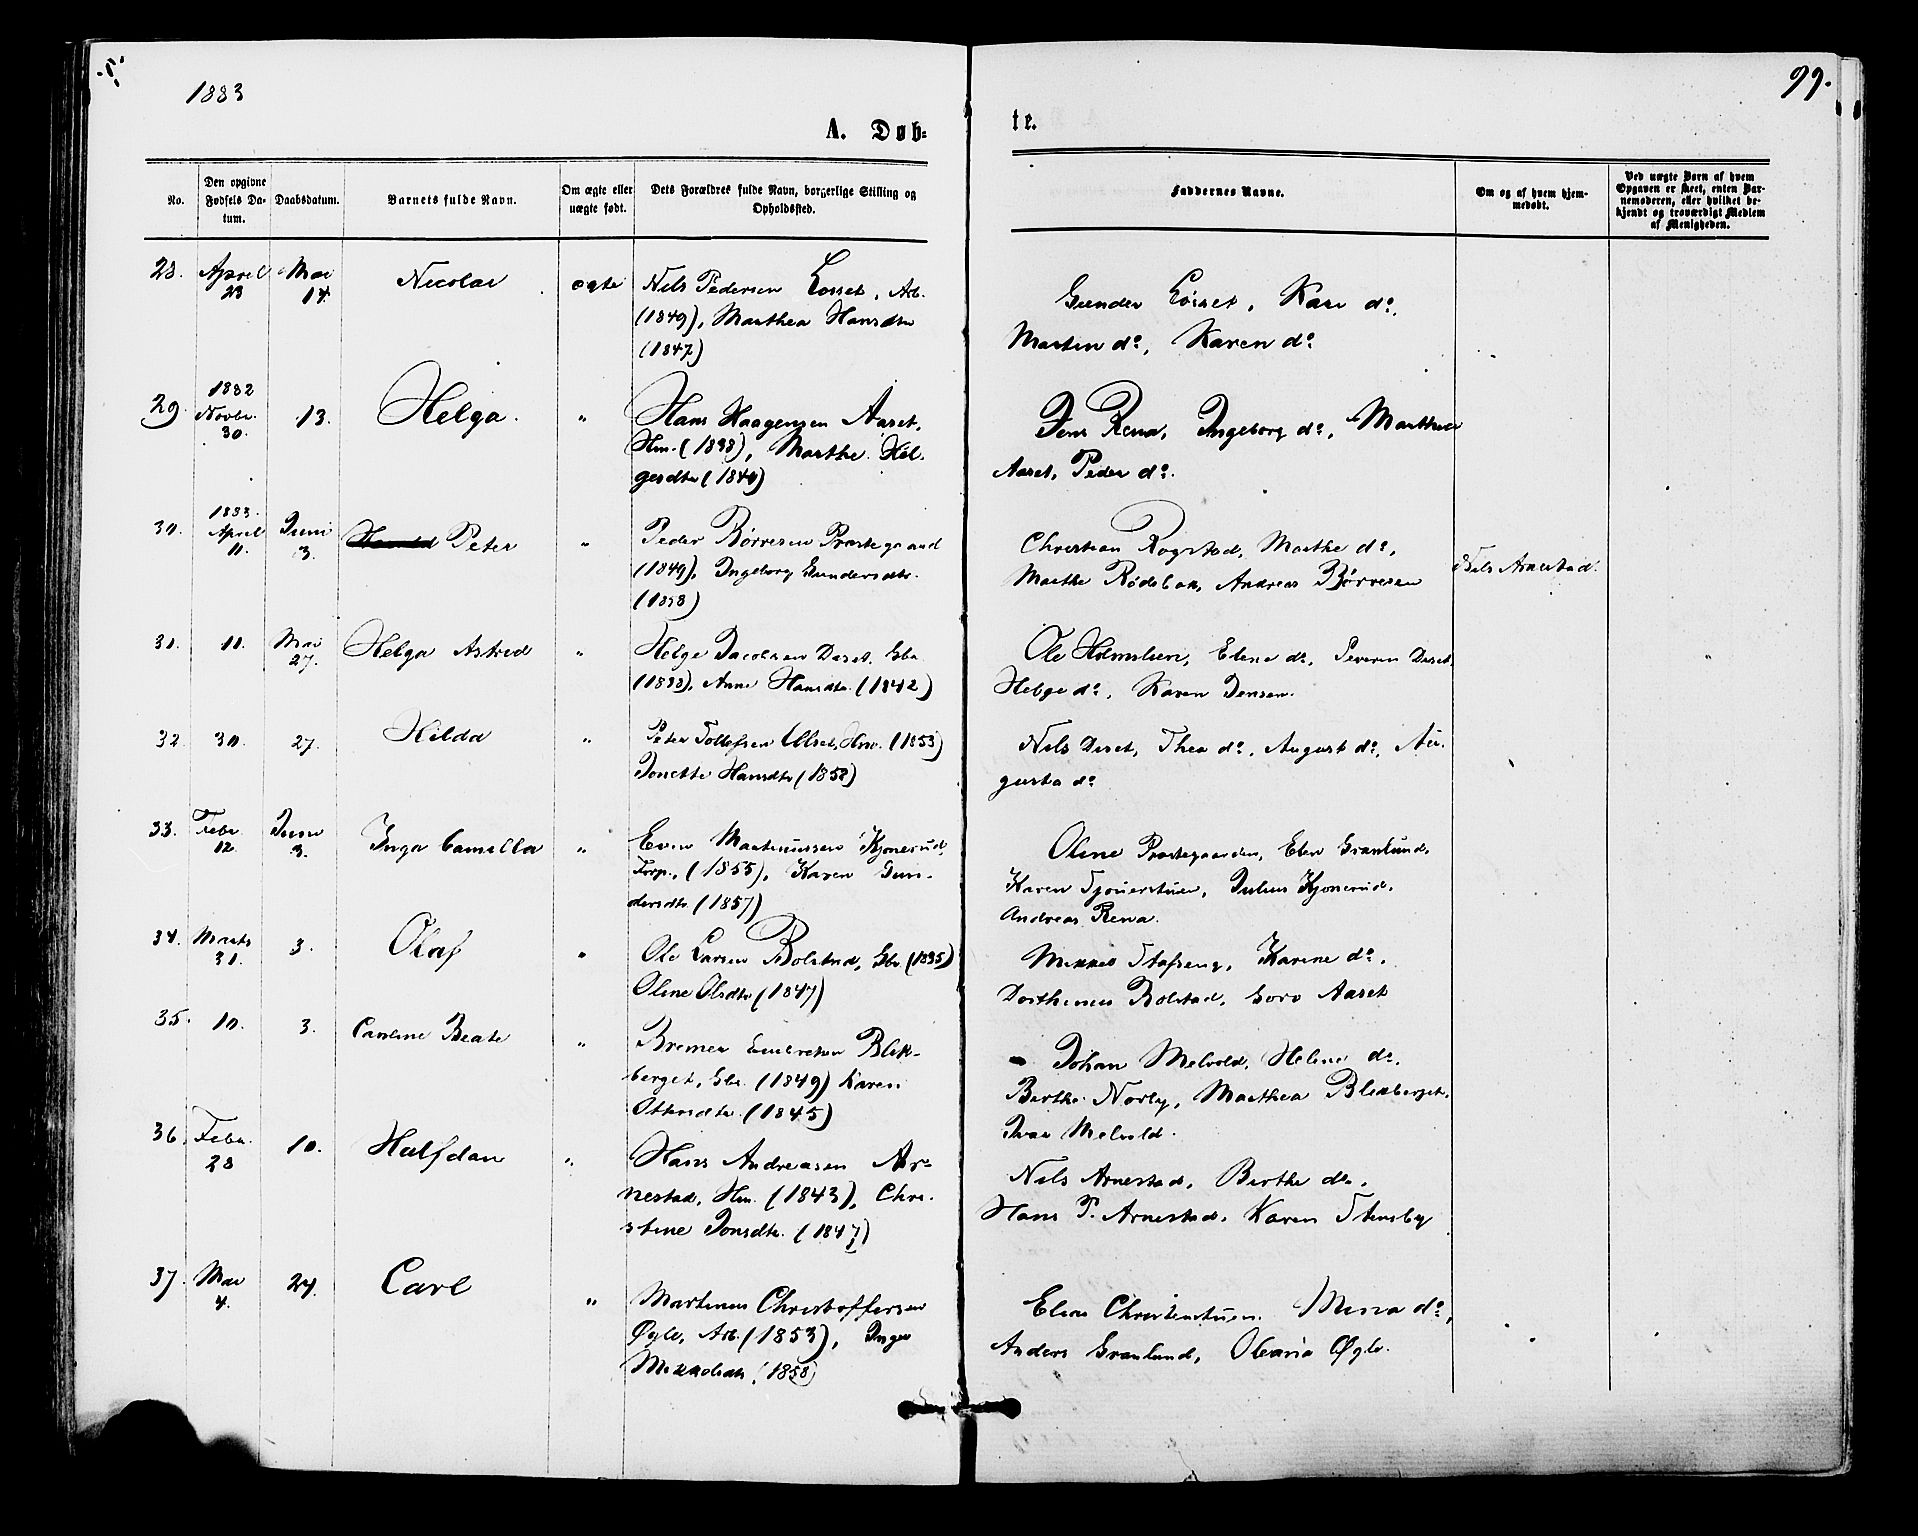 1883
99.
A. Døb=
te.
No.
Den opgivne Fødsels Da-
tum.
Daabsdatum.
Barnets fulde Navn.
Om ægte eller uægte født.
Dets Forældres fulde Navn, borgerlige Stilling og Opholdssted.
Faddernes Navne.
Om og af hvem hjem-
medøbt.
Ved uægte Børn af hvem
Opgaven er skeet, enten Bar-
nemoderen, eller hvilket be-
kjendt og troværdigt Medlem
af Menigheden.
28. April 23 Mai 14. Nicolai ægte Nils Pedersen Løset, Arb.
(1849), Marthea Hansdtr
(1847)
Gunder Løset, Kari do,
Martin do, Karen do
29. 1882 Novbr. 30. 13. Helga. " Hans Haagensen Aaset,
Hm. (1838), Marthe Hel-
gesdtr (1840)
Jens Rena, Ingeborg do, Marthea
Aaset, Peder do.
30. 1883. April 11. Juni 3. Peter " Peder Børresen Præstegaard
(1849), Ingeborg Gundersdtr.
(1858)
Christian Rogstad, Marthe do,
Marthe Rødsbak, Andreas Børresen
Nils Arnestad.
31. 11. Mai 27. Helga Astrid " Helge Jacobsen Deset, Gbr.
(1838), Anne Hansdtr. (1842)
Ole Holmslien, Elene do, Severin Deset,
Helge do, Karen Jensen.
32. 30. 27. Hilda " Peter Tollefsen Ulset, Hm. (1853)
Jonette Hansdtr (1858)
Nils Deset, Thea do, August do, Au-
gusta do
33. Febr. 12. Juni 3. Inga Camilla " Even Martinussen Kjønerud,
Forp., (1855), Karen Gun-
dersdtr. (1857)
Oline Præstegaarden, Elen Granlund,
Karen Julius Kjønerud,
Andreas Rena.
34. Marts 31. 3. Olaf " Ole Larsen Bolstad, Gbr (1835)
Oline Olsdtr (1847)
Mikkel Karine do,
Dorthinus Bolstad, Goro Aaset
35. 10. 3. Caroline Beate " Bremer Embretsen Blik-
berget, Gbr. (1849) Karen
Ottersdtr. (1845)
Johan Melvold, Helene do,
Berthe Norby, Marthea Blikberget,
Ivar Melvold.
36. Febr. 28 10. Halfdan " Hans Andreasen Ar-
nestad, Hm. (1843), Chri-
stine Jonsdtr. (1847)
Nils Arnestad, Berthe do,
Hans P. Arnestad, Karen Stensby
37. Mai 4. 24. Carl " Martinus Christoffersen
Øgle, Arb. (1853), Inger
Mikkelsdtr. (1858)
Elias Christenstuen. Mina do,
Anders Granlund, Oleana Øgle.